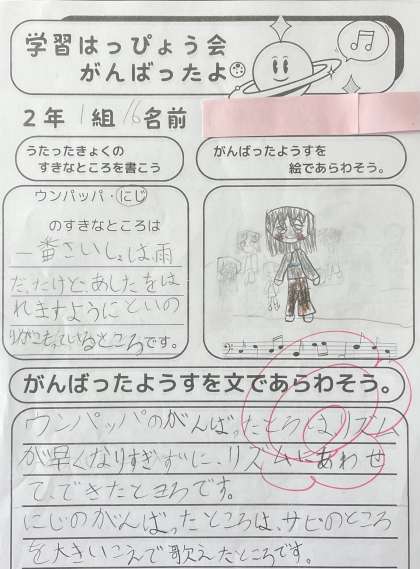 学習はっぴょう会
がんばったよ
2年 1組 16名前
うたったきょくの
すきなところを書こう
がんばったようすを
絵であらわそう。
ウンパッパ・にじ
のすきなところは
一番さいしょは、雨
だったけど、あしたをは
れますようにといの
りがこもっているところです。
がんばったようすを文であらわそう。
ウンパッパのがんばったところは、リズム
が早くなりすぎずに、リズムにあわせ
て、できたところです。
にじのがんばったところは、サビのところ
を大きいこえで歌えたところです。